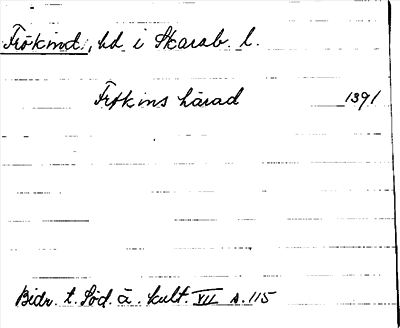 Frökind, hd i Skarab. l.
Frökins härad 1391
Bidr. t. Söd. ä. kult. VII s. 115